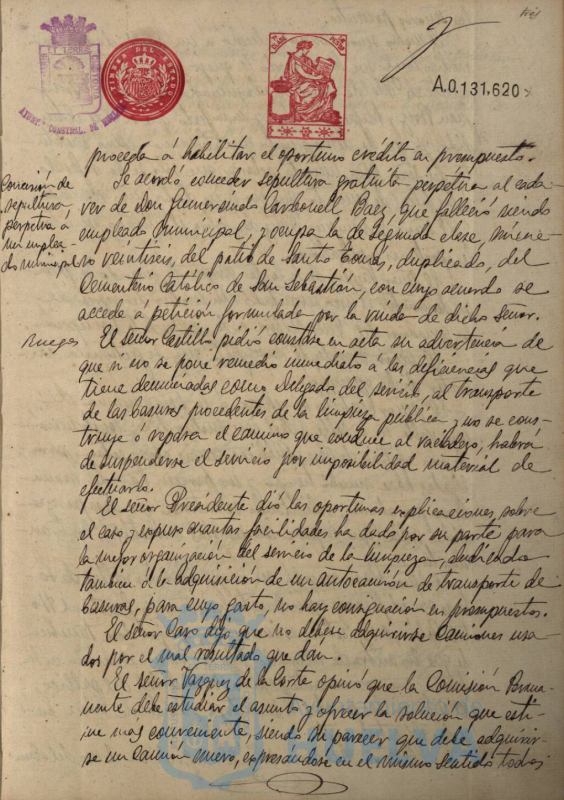 tres
A.0.131.620
TIMBRE DEL ESTADO
proceda á habilitar el oportuno crédito en presupuesto.
Concesión de
sepultura
perpetua á
un emplea-
do municipal
Se acordó conceder sepultura gratuita perpetua al cadá-
ver de Don Gumersindo Carbonell Baez, que falleció siendo
empleado municipal, y ocupa la de segunda clase, núme-
ro veintiseis, del patio de Santo Tomas, duplicado, del
Cementerio Católico de San Sebastián, con cuyo acuerdo se
accede á petición formulada por la viuda de dicho Señor.
Ruegos
El señor Castilla pidió constase en acta su advertencia de
que si no se pone remedio inmediato á las deficiencias que
tiene denunciadas como Delegado del servicio, al transporte
de las basuras procedentes de la limpieza pública y no se cons-
truye ó repara el camino que conduce al vaciadero, habrá
de suspenderse el servicio por imposibilidad material de
efectuarlo.
El señor Presidente dió las oportunas explicaciones sobre
el caso y expuso cuantas facilidades ha dado por su parte para
la mejor organización del servicio de la limpieza, aludiendo
tambien á la adquisición de un autocamión de transporte de
basuras, para cuyo gasto, no hay consignación en presupuestos.
El señor Caso dijo que no debese adquirirse Camiones usa-
dos por el mal resultado que dan.
El señor Vazquez de la Corte opinó que la Comisión Perma-
nente debe estudiar el asunto y ofrecer la solución que esti-
me más conveniente, siendo su parecer que debe adquirir-
se un camión nuevo, expresandose en el mismo sentido todos